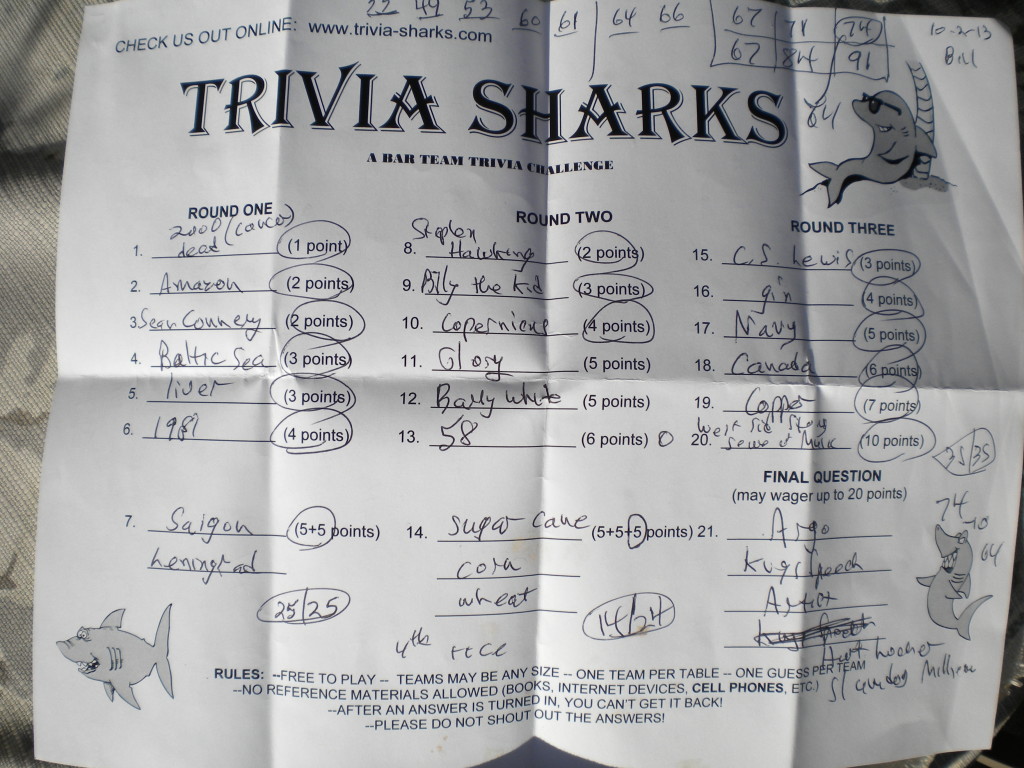 22 49 53 60 61 64 66 67 71 74
67 84 91
10-2-13
Bill
CHECK US OUT ONLINE: www.trivia-sharks.com
TRIVIA SHARKS
64
A BAR TEAM TRIVIA CHALLENGE
ROUND ONE
2000 (cancer)
1. dead (1 point)
2. Amazon (2 points)
3. Sean Connery (2 points)
4. Baltic Sea (3 points)
5. liver (3 points)
6. 1981 (4 points)
7. Saigon (5+5 points)
Leningrad
25/25
ROUND TWO
Stephen
8. Hawking (2 points)
9. Billy the Kid (3 points)
10. Copernicus (4 points)
11. Glory (5 points)
12. Barry White (5 points)
13. 58 (6 points) 0
14. sugar cane (5+5+5 points)
corn
wheat
14/24
4th rice
ROUND THREE
15. C.S. Lewis (3 points)
16. gin (4 points)
17. Navy (5 points)
18. Canada (6 points)
19. Copper (7 points)
West Side Story
20. Sound of Music (10 points)
35/35
FINAL QUESTION
(may wager up to 20 points)
21. Argo
Kings Speech
Artist
Hurt Locker
Slumdog Million
74
-10
64
RULES: --FREE TO PLAY -- TEAMS MAY BE ANY SIZE -- ONE TEAM PER TABLE -- ONE GUESS PER TEAM
--NO REFERENCE MATERIALS ALLOWED (BOOKS, INTERNET DEVICES, CELL PHONES, ETC.)
--AFTER AN ANSWER IS TURNED IN, YOU CAN'T GET IT BACK!
--PLEASE DO NOT SHOUT OUT THE ANSWERS!